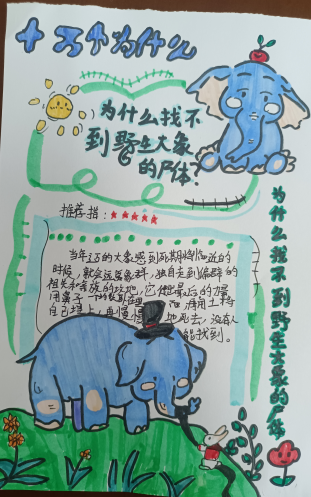 十万个为什么
为什么找不
到野生大象
的尸体?
推荐指:★★★★★
当年迈的大象感到死期将临近的
时候,就会远离象群,独自走到偏僻的
祖先和
最后的力量
用鼻子
用土将
自己埋上,再慢慢
地死去,没有人
能找到。
为什么找不到野生大象的尸体